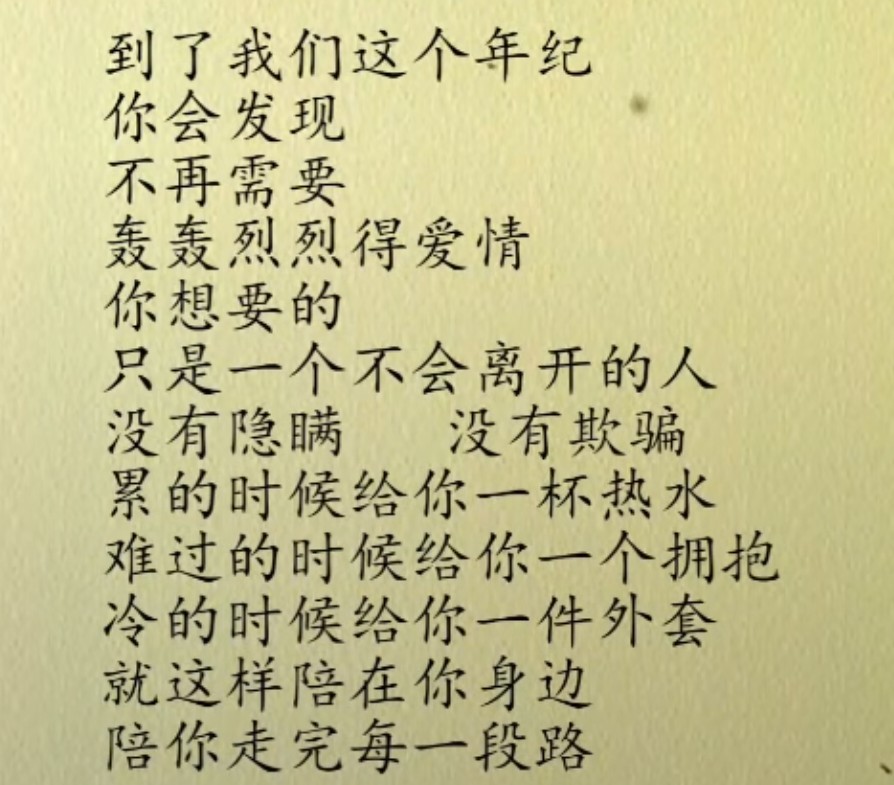 到了我们这个年纪
你会发现
不再需要
轰轰烈烈得爱情
你想要的
只是一个不会离开的人
没有隐瞒 没有欺骗
累的时候给你一杯热水
难过的时候给你一个拥抱
冷的时候给你一件外套
就这样陪在你身边
陪你走完每一段路